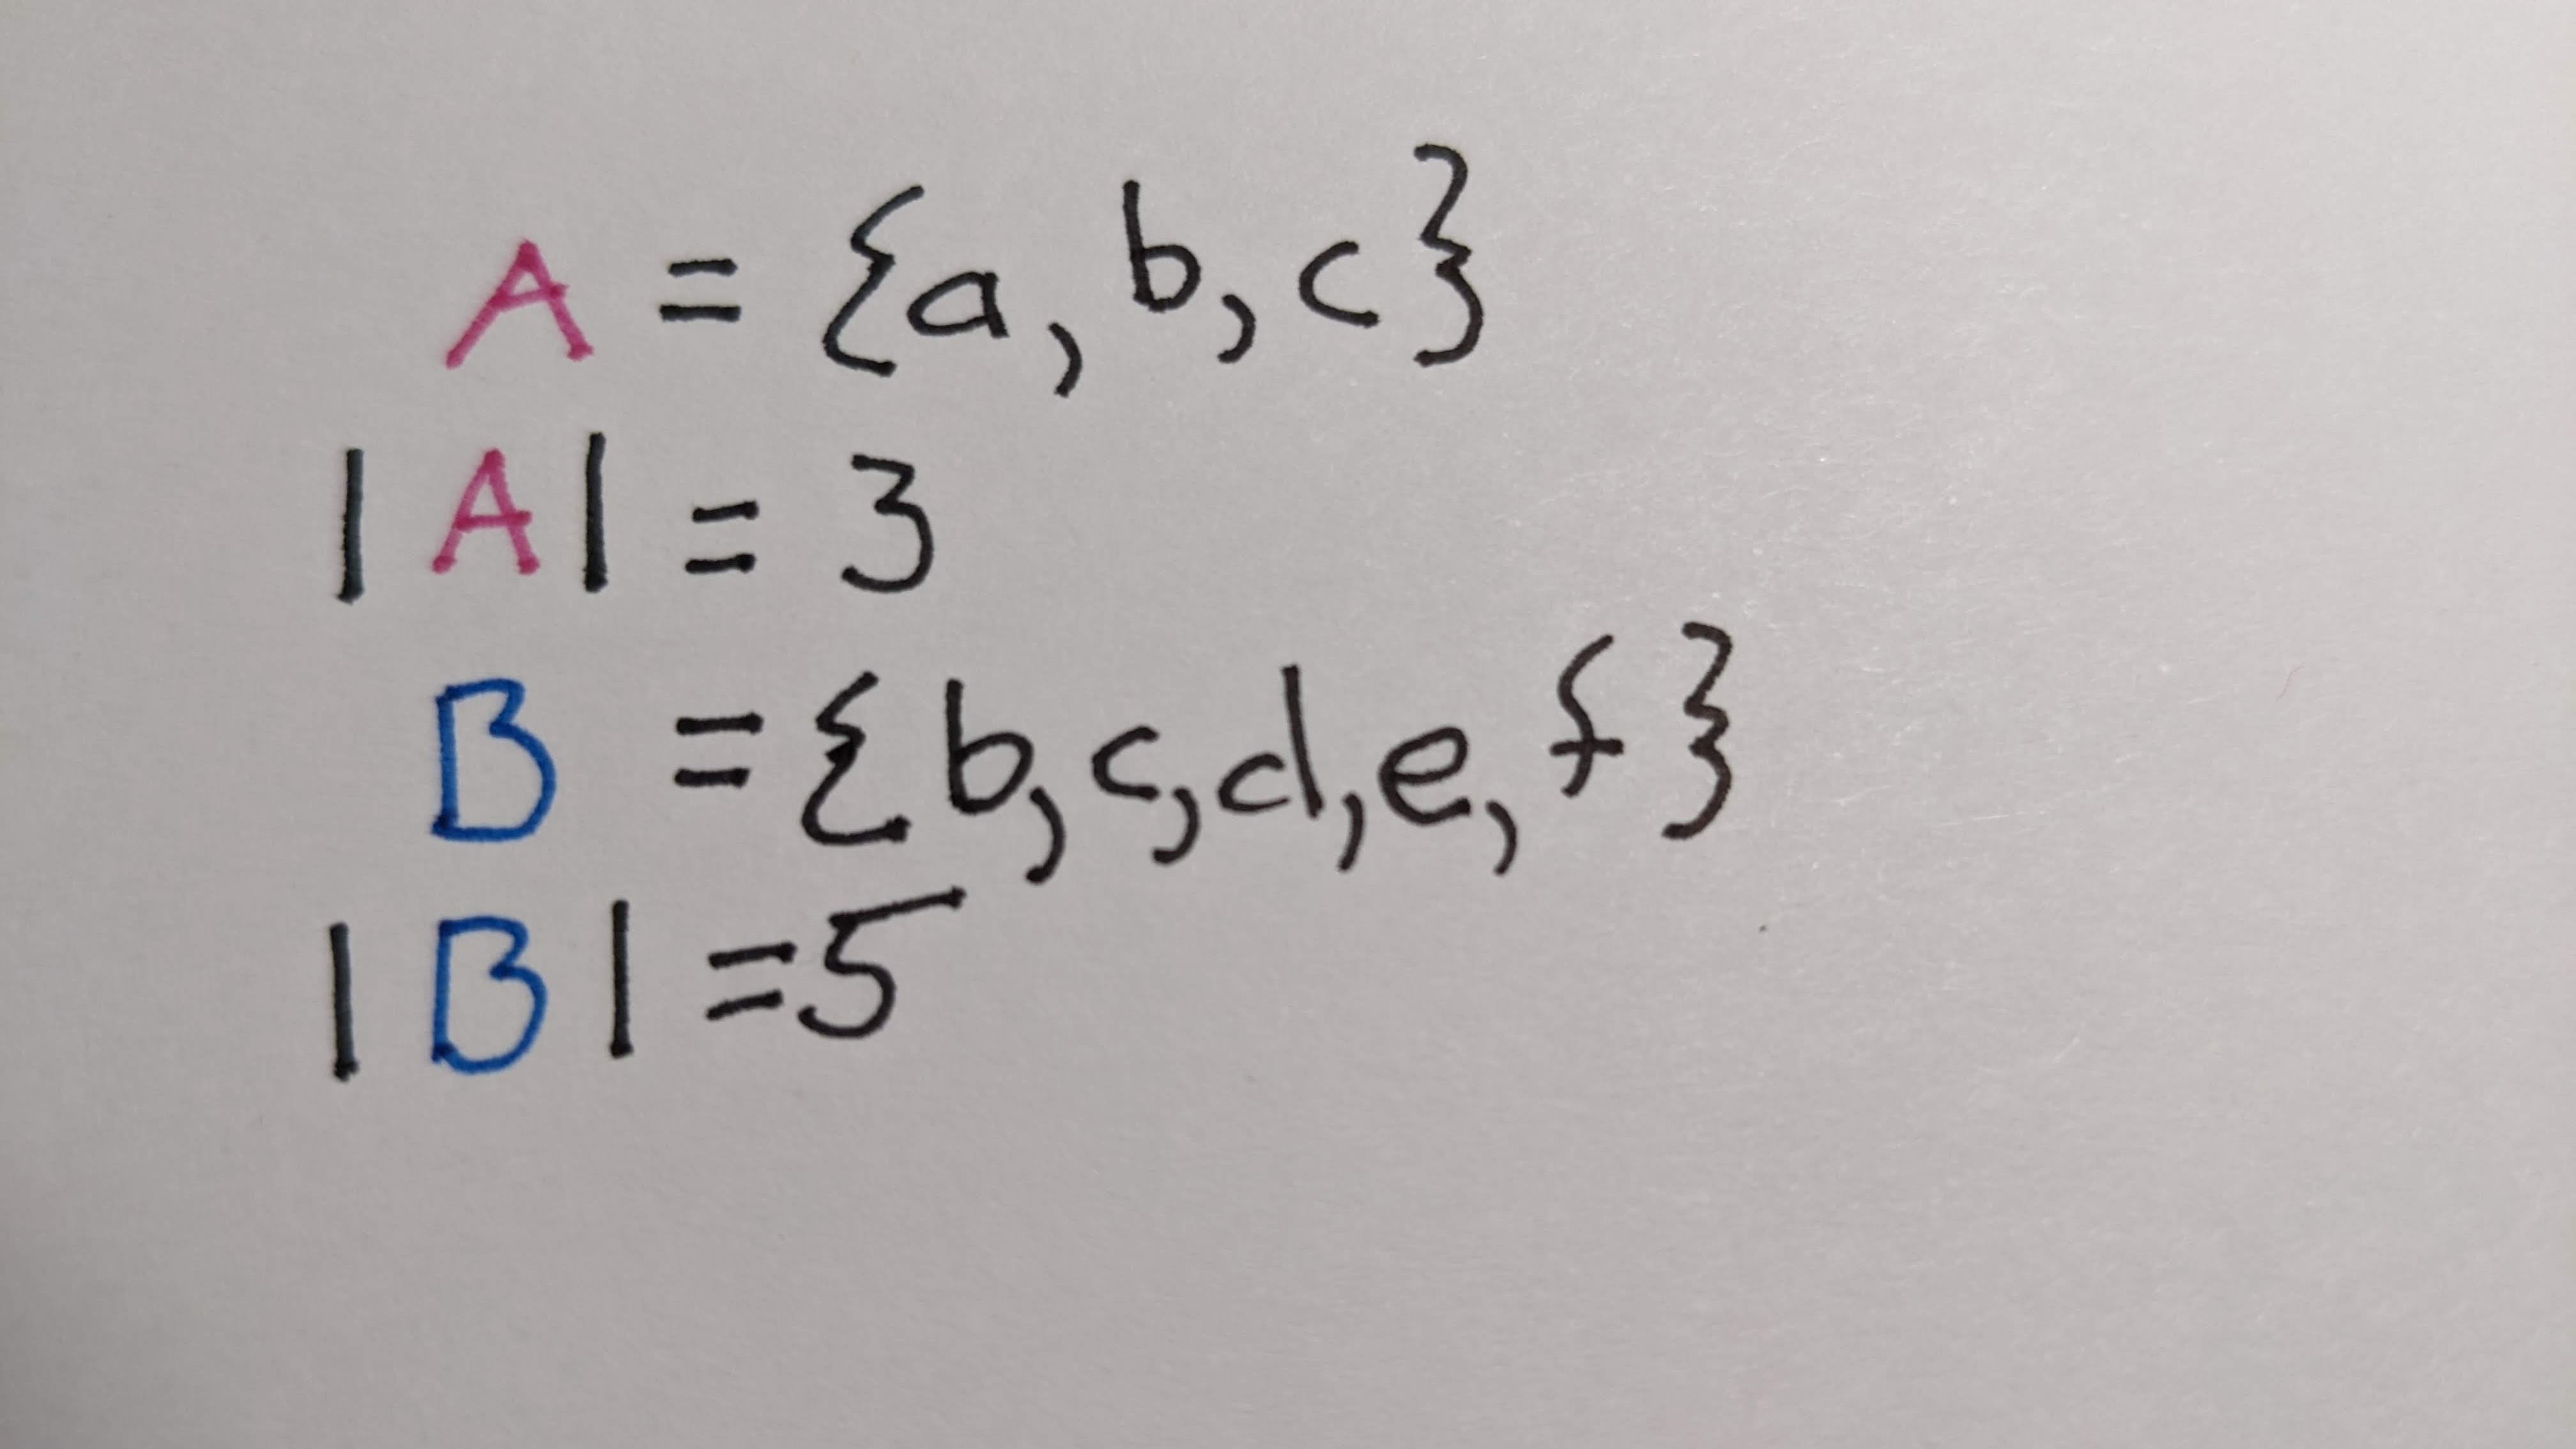 A = {a, b, c}
|A| = 3
B = {b, c, d, e, f}
|B| = 5